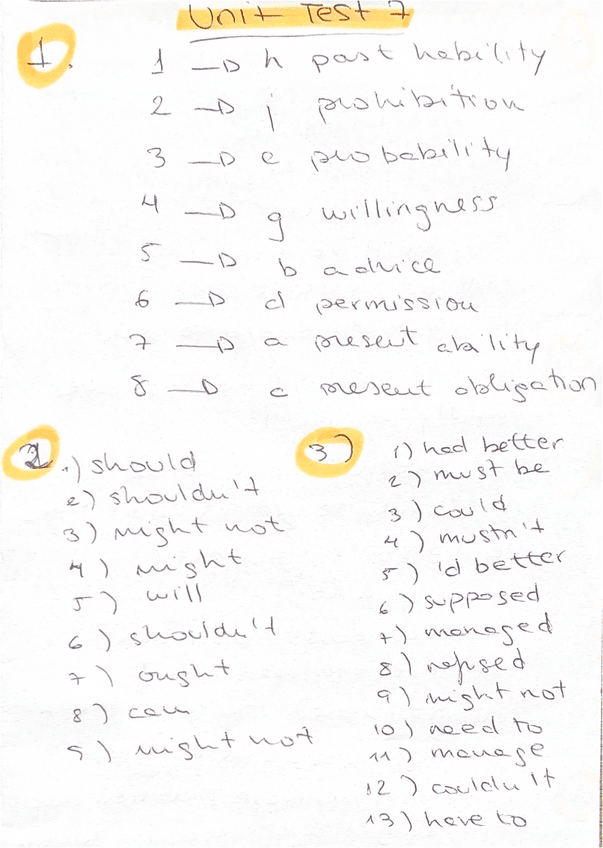 Unit Test 7
1.
1 → h past hability
2 → j prohibition
3 → e probability
4 → g willingness
5 → b advice
6 → d permission
7 → a present ability
8 → c present obligation
2
1) should
2) shouldn't
3) might not
4) might
5) will
6) shouldn't
7) ought
8) can
9) might not
3)
1) had better
2) must be
3) could
4) mustn't
5) 'd better
6) supposed
7) managed
8)
9) might not
10) need to
11) manage
12) couldn't
13) have to